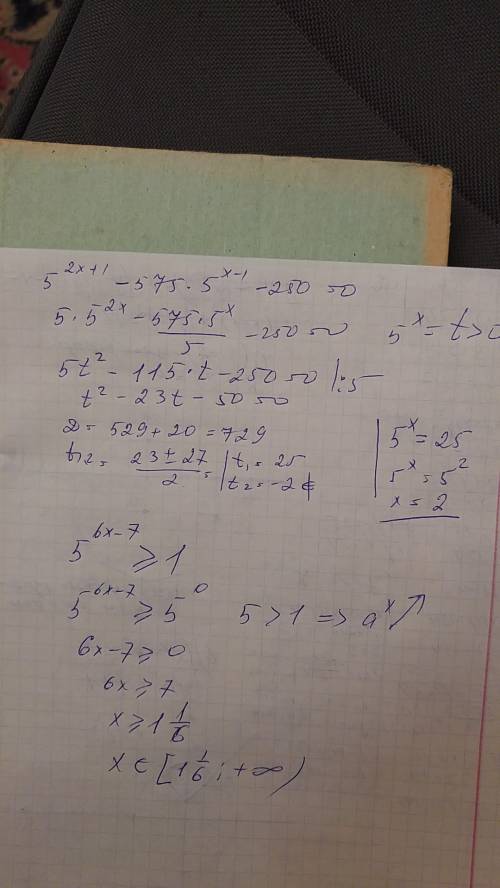 5^{2x+1} - 575 · 5^{x-1} - 250 = 0
5 · 5^{2x} - \frac{575 · 5^x}{5} - 250 = 0    5^x = t > 0
5t² - 115 · t - 250 = 0 | :5
t² - 23t - 50 = 0
D = 529 + 20 = 729
t₁,₂ = \frac{23 ± 27}{2} = | t₁ = 25
t₂ = -2 ∉
5^x = 25
5^x = 5²
x = 2
5^{6x-7} ⩾ 1
5^{6x-7} ⩾ 5^0    5 > 1 => a^x ↗
6x - 7 ⩾ 0
6x ⩾ 7
x ⩾ 1\frac{1}{6}
x ∈ [1\frac{1}{6}; +∞)